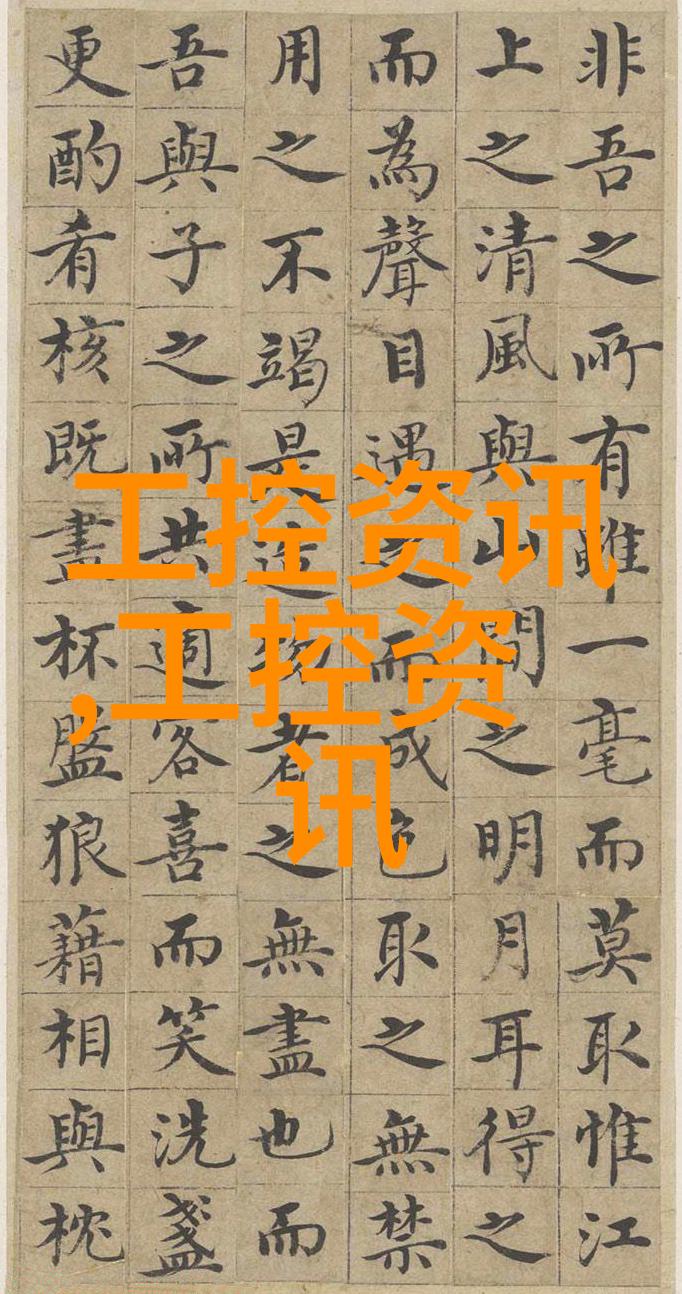 非吾之所有雖一毫而莫取惟江
上之清風與山間之明月耳得之
而為聲目遇之而成色取之無禁
用之不竭是造物者之無盡也而
吾與子之所共適客喜而笑洗盞
更酌肴核既盡杯盤狼藉相與枕
工控资讯
,工控资
讯